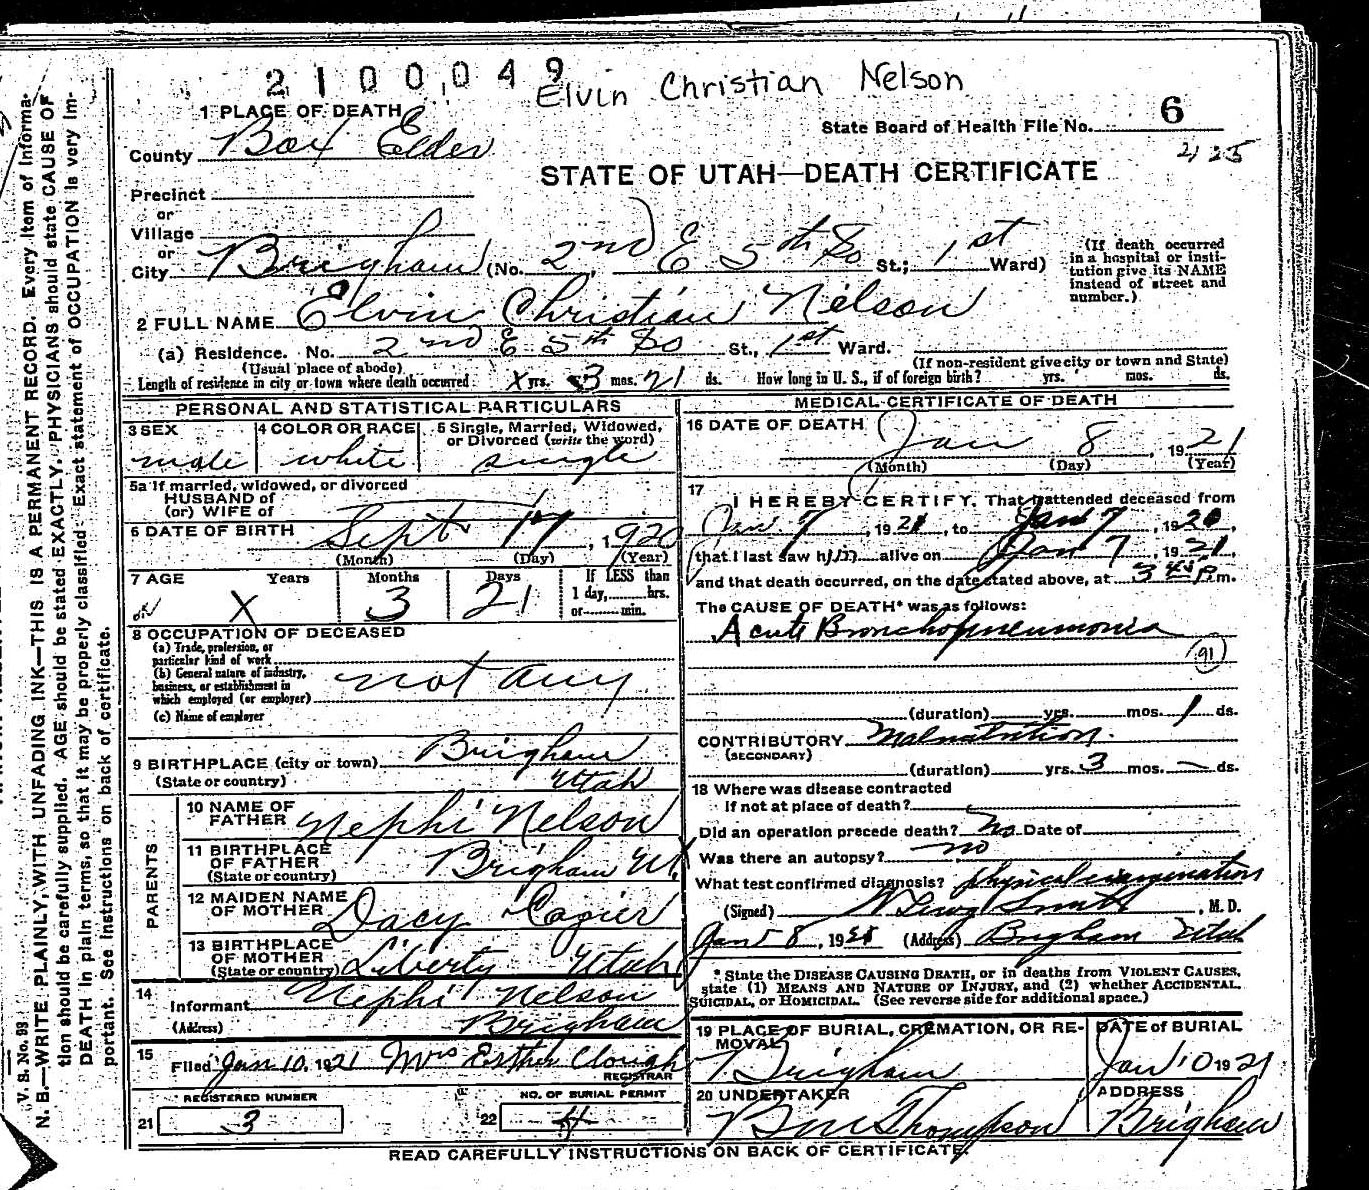 2100049
Elvin Christian Nelson
1 PLACE OF DEATH
State Board of Health File No. 6
County Box Elder
2125
STATE OF UTAH—DEATH CERTIFICATE
Precinct
or
Village
or
City Brigham (No. 2nd E 5th So St.; 1st Ward)
(If death occurred
in a hospital or insti-
tution give its NAME
instead of street and
number.)
2 FULL NAME Elvin Christian Nelson
(a) Residence. No. 2nd E 5th So St., 1st Ward.
(Usual place of abode)
(If non-resident give city or town and State)
Length of residence in city or town where death occurred X yrs. 3 mos. 21 ds. How long in U. S., if of foreign birth? yrs. mos. ds.
PERSONAL AND STATISTICAL PARTICULARS
3 SEX
male
4 COLOR OR RACE
white
5 Single, Married, Widowed,
or Divorced (write the word)
single
5a If married, widowed, or divorced
HUSBAND of
(or) WIFE of
6 DATE OF BIRTH Sept 17, 1920
(Month) (Day) (Year)
7 AGE Years Months Days If LESS than
X 3 21 1 day, hrs.
or min.
8 OCCUPATION OF DECEASED
(a) Trade, profession, or
particular kind of work
(b) General nature of industry,
business, or establishment in
which employed (or employer) not any
(c) Name of employer
9 BIRTHPLACE (city or town) Brigham
(State or country) Utah
PARENTS
10 NAME OF
FATHER Nephi Nelson
11 BIRTHPLACE
OF FATHER
(State or country) Brigham Ut.
12 MAIDEN NAME
OF MOTHER Dacy
13 BIRTHPLACE
OF MOTHER
(State or country) Liberty Utah
14
Informant Nephi Nelson
(Address) Brigham
15
Filed Jan 10, 1921 Mrs Esther Clough
REGISTRAR
REGISTERED NUMBER
21 3
NO. OF BURIAL PERMIT
22 4
MEDICAL CERTIFICATE OF DEATH
16 DATE OF DEATH Jan 8, 1921
(Month) (Day) (Year)
17
I HEREBY CERTIFY, That I attended deceased from
Jan 7, 1921, to Jan 7, 19
that I last saw him alive on Jan 7, 1921,
and that death occurred, on the date stated above, at 3 45 P.m.
The CAUSE OF DEATH* was as follows:
Acute Bronchopneumonia
91
(duration) yrs. mos. 1 ds.
CONTRIBUTORY Malnutrition.
(SECONDARY)
(duration) yrs. 3 mos. — ds.
18 Where was disease contracted
if not at place of death?
Did an operation precede death? No Date of
Was there an autopsy? no
What test confirmed diagnosis? physical examination
(Signed) Smith, M. D.
Jan 8, 1921 (Address) Brigham Utah
* State the DISEASE CAUSING DEATH, or in deaths from VIOLENT CAUSES,
state (1) MEANS AND NATURE OF INJURY, and (2) whether ACCIDENTAL,
SUICIDAL, or HOMICIDAL. (See reverse side for additional space.)
19 PLACE OF BURIAL, CREMATION, OR RE-
MOVAL
Brigham
DATE of BURIAL
Jan 10 1921
20 UNDERTAKER
Thompson
ADDRESS
Brigham
READ CAREFULLY INSTRUCTIONS ON BACK OF CERTIFICATE.
V. S. No. 93
N. B.—WRITE PLAINLY, WITH UNFADING INK—THIS IS A PERMANENT RECORD. Every item of informa-
tion should be carefully supplied. AGE should be stated EXACTLY. PHYSICIANS should state CAUSE OF
DEATH in plain terms, so that it may be properly classified. Exact statement of OCCUPATION is very im-
portant. See instructions on back of certificate.